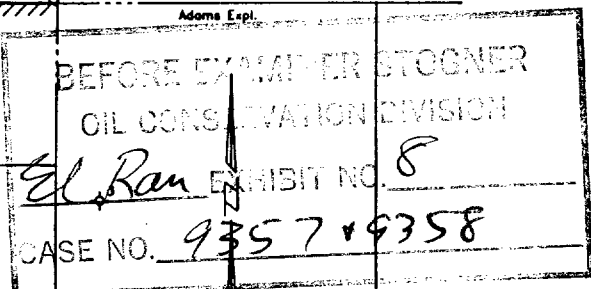 Adams Expl.
BEFORE EXAMINER STOGNER
OIL CONSERVATION DIVISION
El Ran EXHIBIT NO. 8
CASE NO. 9357 & 9358